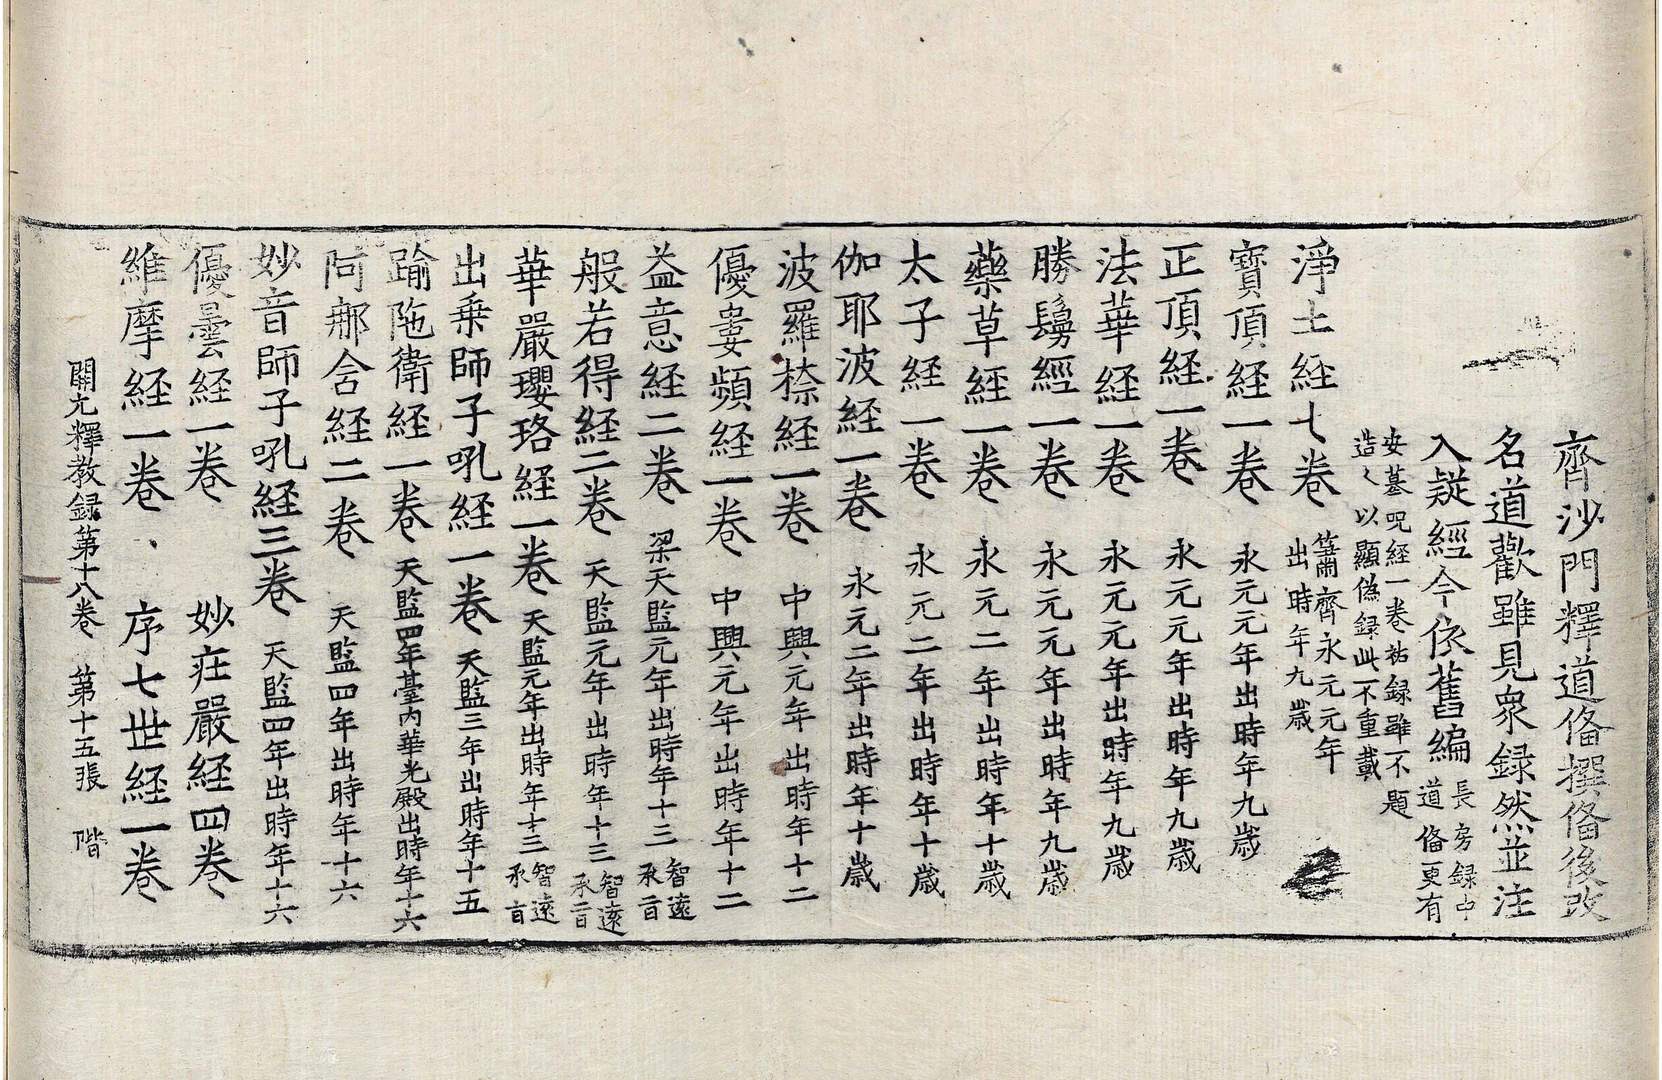 齊沙門釋道俻撰俻後改
名道歡雖見衆録然並注
入疑經今依舊編長房録中道俻更有
安墓呪経一卷祐録雖不題
造〻以顯偽録此不重載
淨土経七卷 蕭齊永元元年出時年九歲
寶頂経一卷 永元元年出時年九歲
正頂経一卷 永元元年出時年九歲
法華経一卷 永元元年出時年九歲
勝鬘經一卷 永元元年出時年九歲
藥草経一卷 永元二年出時年十歲
太子経一卷 永元二年出時年十歲
伽耶波経一卷 永元二年出時年十歲
波羅㮈経一卷 中興元年出時年十二
優婁頻経一卷 中興元年出時年十二
益意経二卷 梁天監元年出時年十三智遠承旨
般若得経二卷 天監元年出時年十三智遠承旨
華嚴瓔珞経一卷 天監元年出時年十三智遠承旨
出乘師子吼経一卷 天監三年出時年十五
踰陁衛経一卷 天監四年臺内華光殿出時年十六
阿那含経二卷 天監四年出時年十六
妙音師子吼経三卷 天監四年出時年十六
優曇経一卷 妙莊嚴経四卷
維摩経一卷 序七世経一卷
開元釋教録第十八卷 第十五張 階